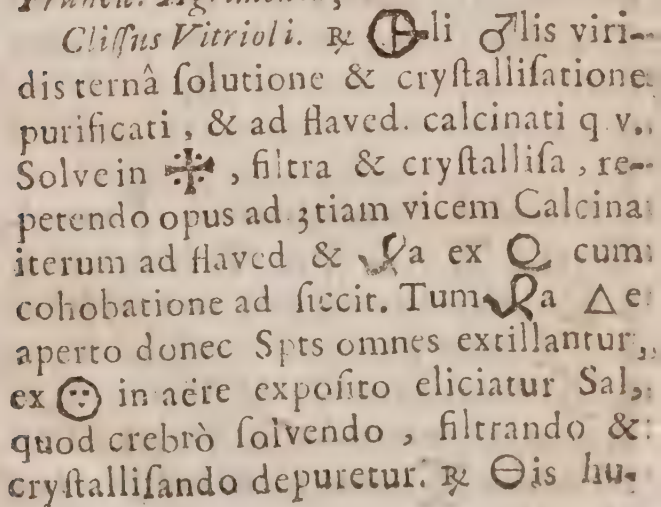 Clissus Vitrioli. ℞ 🜖li ♂lis viri-
dis ternâ ſolutione & cryſtalliſatione
purificati, & ad flaved. calcinati q v.
Solve in 🜋, filtra & cryſtalliſa, re-
petendo opus ad 3tiam vicem Calcina
iterum ad flaved & a ex cum
cohobatione ad ſiccit. Tum a △e
aperto donec Spts omnes extillantur,
ex in aëre expoſito eliciatur Sal,
quod crebrò ſolvendo, filtrando &
cryſtalliſando depuretur. ℞ 🜔is hu-